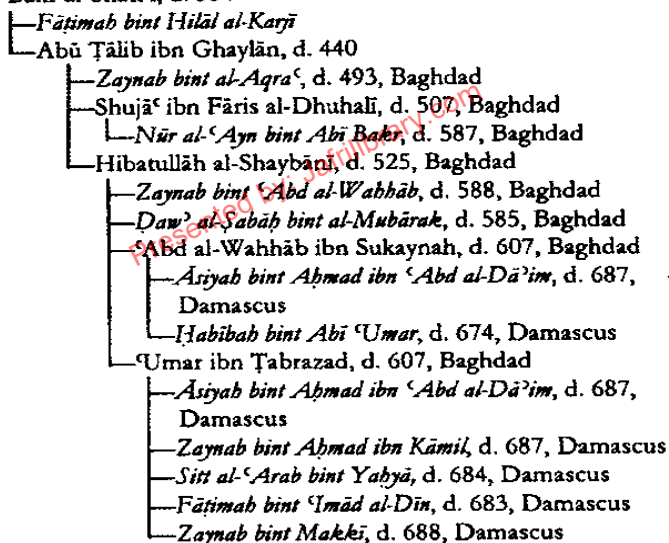 Fāṭimah bint Hilāl al-Karjī
Abū Ṭālib ibn Ghaylān, d. 440
Zaynab bint al-Aqraʿ, d. 493, Baghdad
Shujāʿ ibn Fāris al-Dhuhalī, d. 507, Baghdad
Nūr al-ʿAyn bint Abī Bakr, d. 587, Baghdad
Hibatullāh al-Shaybānī, d. 525, Baghdad
Zaynab bint ʿAbd al-Wahhāb, d. 588, Baghdad
Ḍawʾ al-Ṣabāḥ bint al-Mubārak, d. 585, Baghdad
ʿAbd al-Wahhāb ibn Sukaynah, d. 607, Baghdad
Āsiyah bint Aḥmad ibn ʿAbd al-Dāʾim, d. 687,
Damascus
Ḥabībah bint Abī ʿUmar, d. 674, Damascus
ʿUmar ibn Ṭabrazad, d. 607, Baghdad
Āsiyah bint Aḥmad ibn ʿAbd al-Dāʾim, d. 687,
Damascus
Zaynab bint Aḥmad ibn Kāmil, d. 687, Damascus
Sitt al-ʿArab bint Yaḥyā, d. 684, Damascus
Fāṭimah bint ʿImād al-Dīn, d. 683, Damascus
Zaynab bint Makkī, d. 688, Damascus
Presented by: Jafrilibrary.com